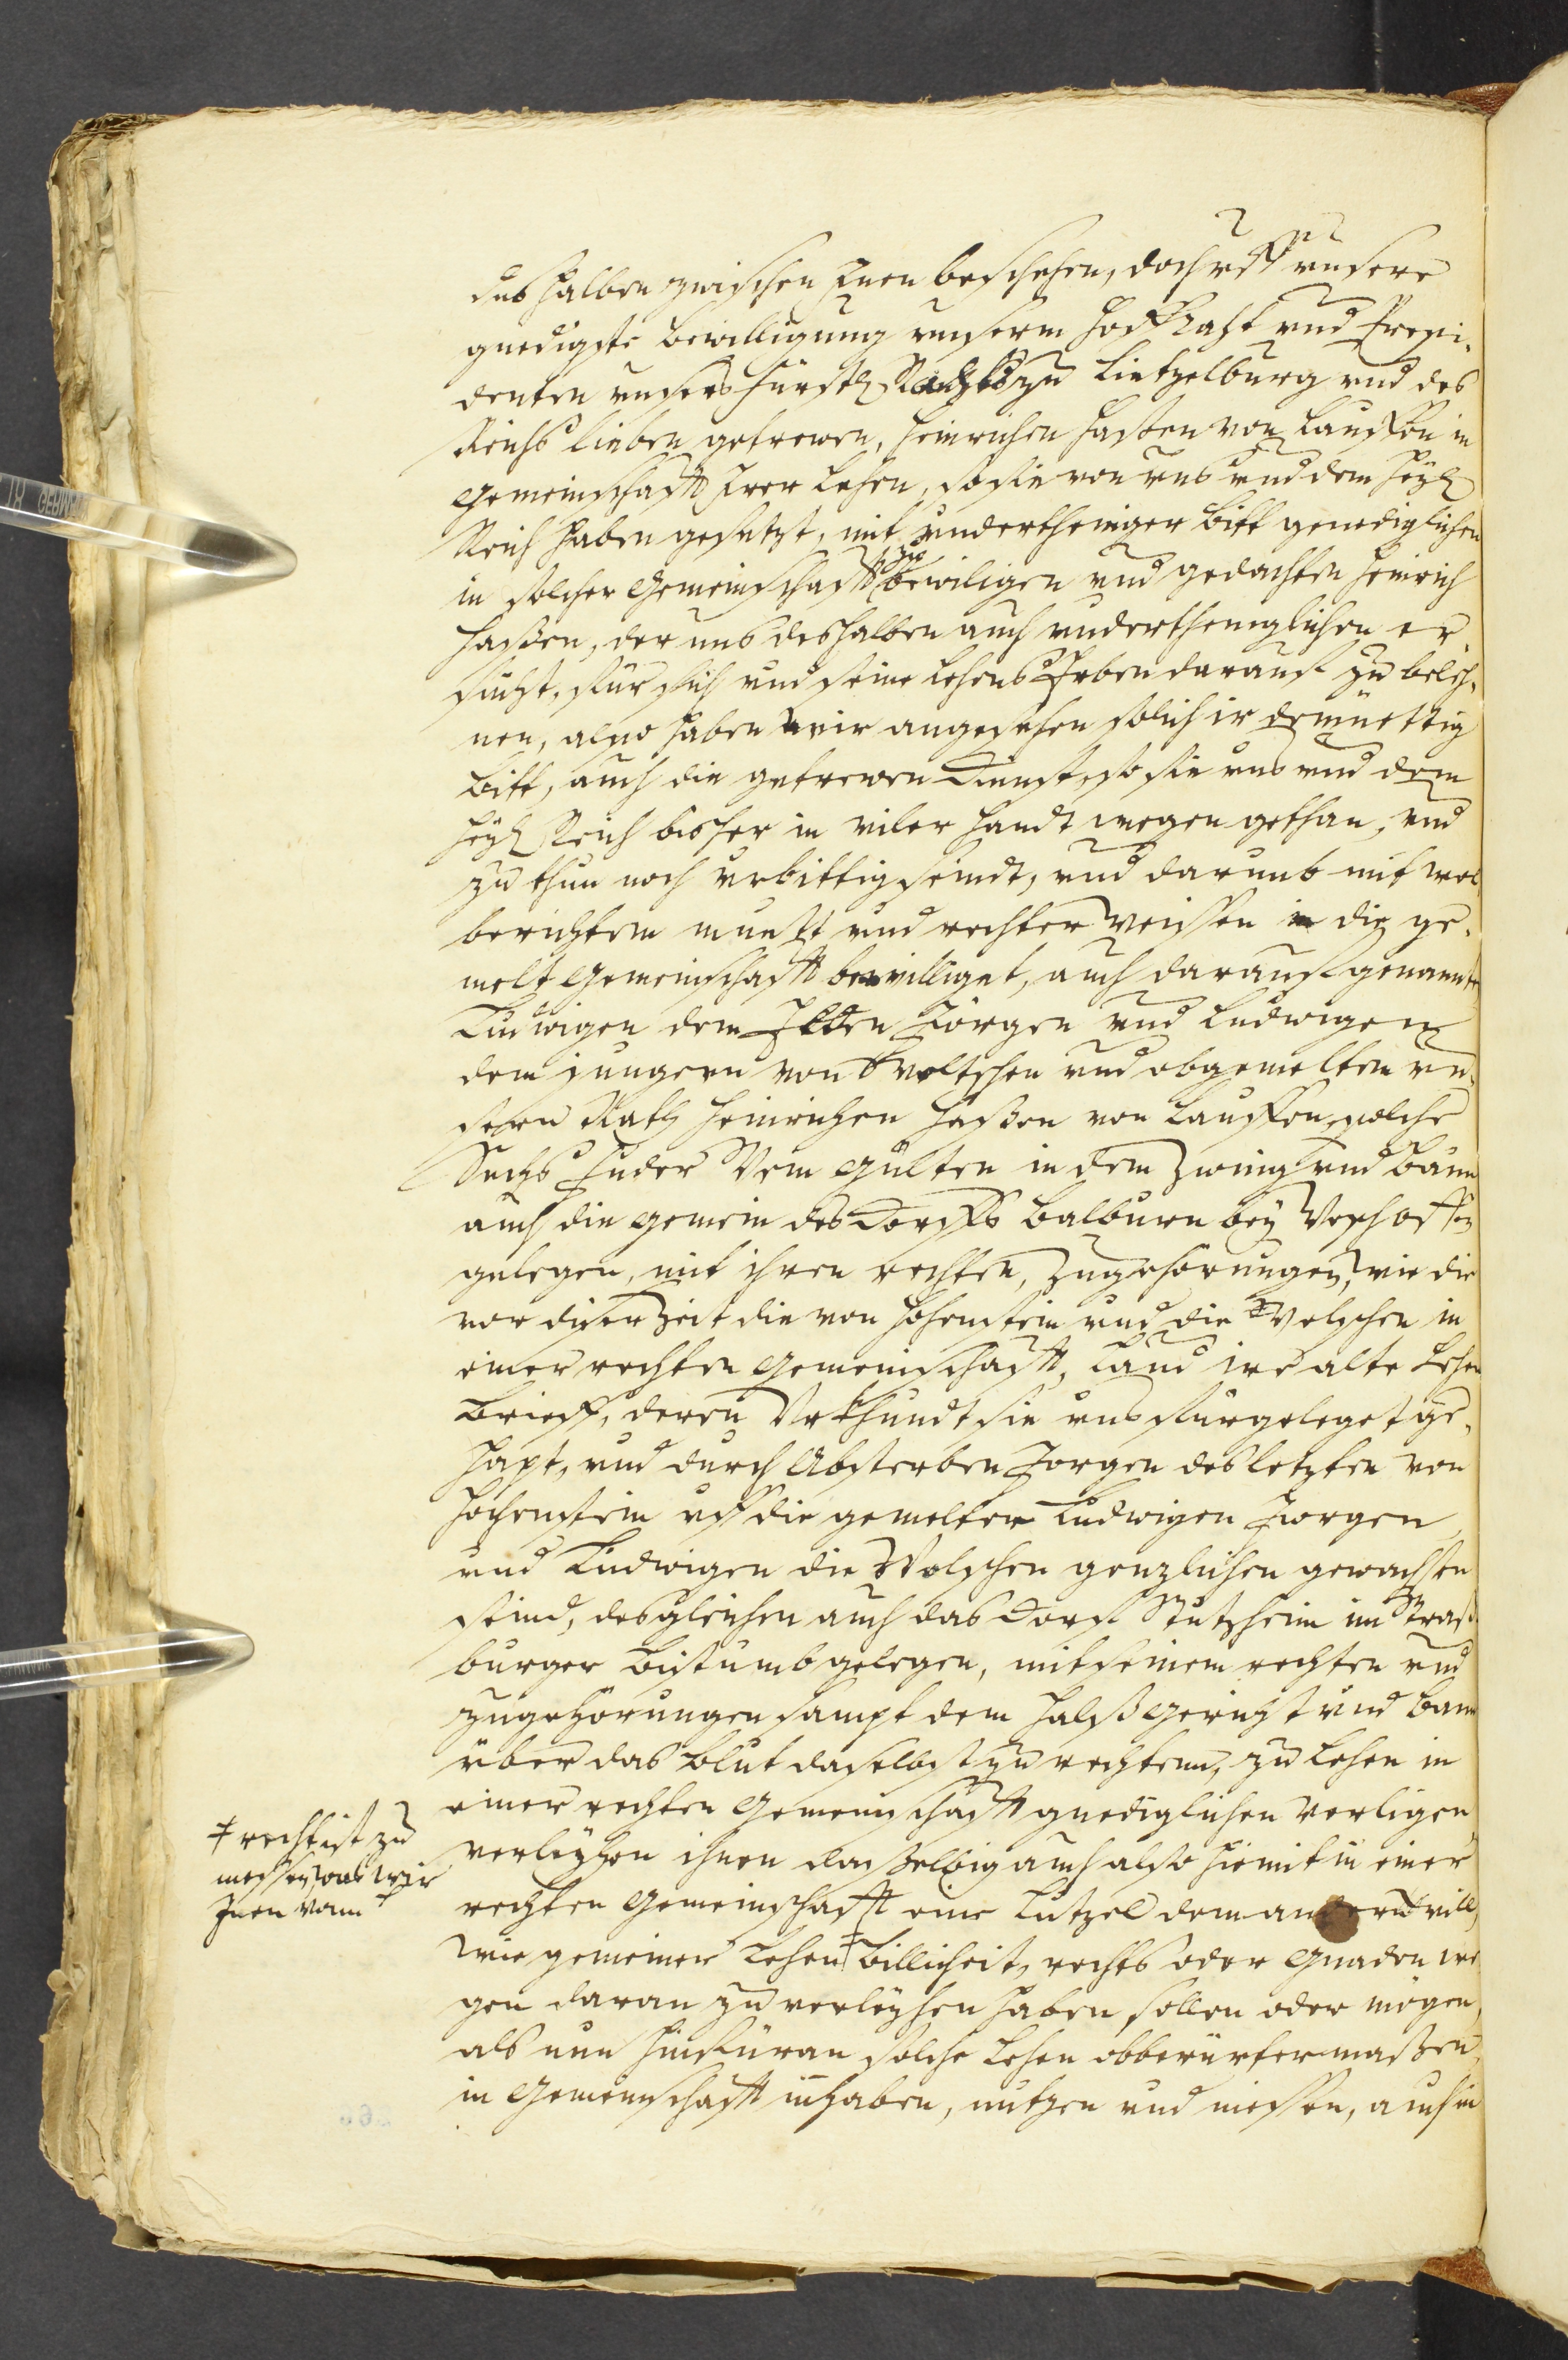 deshalben zwischen Inen beschehen, doch uff unsere
gnedigste bewilligung unserm HoffRaht und Presi-
denten unsers Fürstl. Rahts zu Lietzelburg und des
Reichs lieben getrewen, Heinrichen Haßen von Lauffen in
Gemeinschafft Irer Lehen, so sie von uns und dem Heyl.
Reich haben gesetzt, mit undertheniger bitt genediglichen
in solcher Gemeinschafft zu bewiligen und gedachten Heinrich
Haßen, der uns deshalben auch underthenglichen er
sucht, für sich und seine Lehens Erben darauf zu beleh-
nen, also haben wir angesehen solich ir demüettig
bitt, auch die getrewen Dienst, so sie uns und dem
Heyl. Reich bisher in viler handt wegen gethan, und
zu thun noch urbittig seindt, und darumb mit wol
berichtem mueth und rechter weissen in die ge-
melt Gemeinschafft bewilliget, auch darauf genannte
Ludwigen dem Eltern Jörgen und Ludwigen
dem jungern von Weltschen und obgemelten un-
sern Rath Heinrichen Haßen von Lauffen, solche
Sechs Fuder Wein gülten in dem zwing und Bann
auch die gemein des Dorffs Balburn bey Westhoffen
gelegen, mit ihren rechten, zugehörungen, wie die
vor diser Zeit die von Hohenstein und die Welschen in
einer rechten Gemeinschafft, Laud ire alte Lehen
Brieff, deren Urkhundt sie uns furgeleget ge-
hapt, und durch Absterben Jorgen des letzten von
Hohenstein uff die gemelten Ludwigen Jorgen
und Ludwigen die Welschen genzlichen gewachsen
seind, desgleichen auch das Dorf Stutzheim im Straß
burger Bistumb gelegen, mit seinem rechten und
zugehörungen sampt dem Halßgericht und bann
über das Blut daselbst zu rechtenn, zu Lehen in
einer rechten Gemeinschafft gnediglichen Verligen
verleyhen ihnen daßelbig auch also hiemit in einer
rechten Gemeinschafft eine Lützel dem andern vill,
wie gemeiner Lehen ‡ billicheit, rechts oder gnaden we
gen daran zu verleyhen haben, sollen oder mögen,
als nun hinfüran solche Lehen obberürter maßen
in Gemeinschafft inhaben, nutzen und niessen, auch in
‡ recht ist zu
wir
Inen von